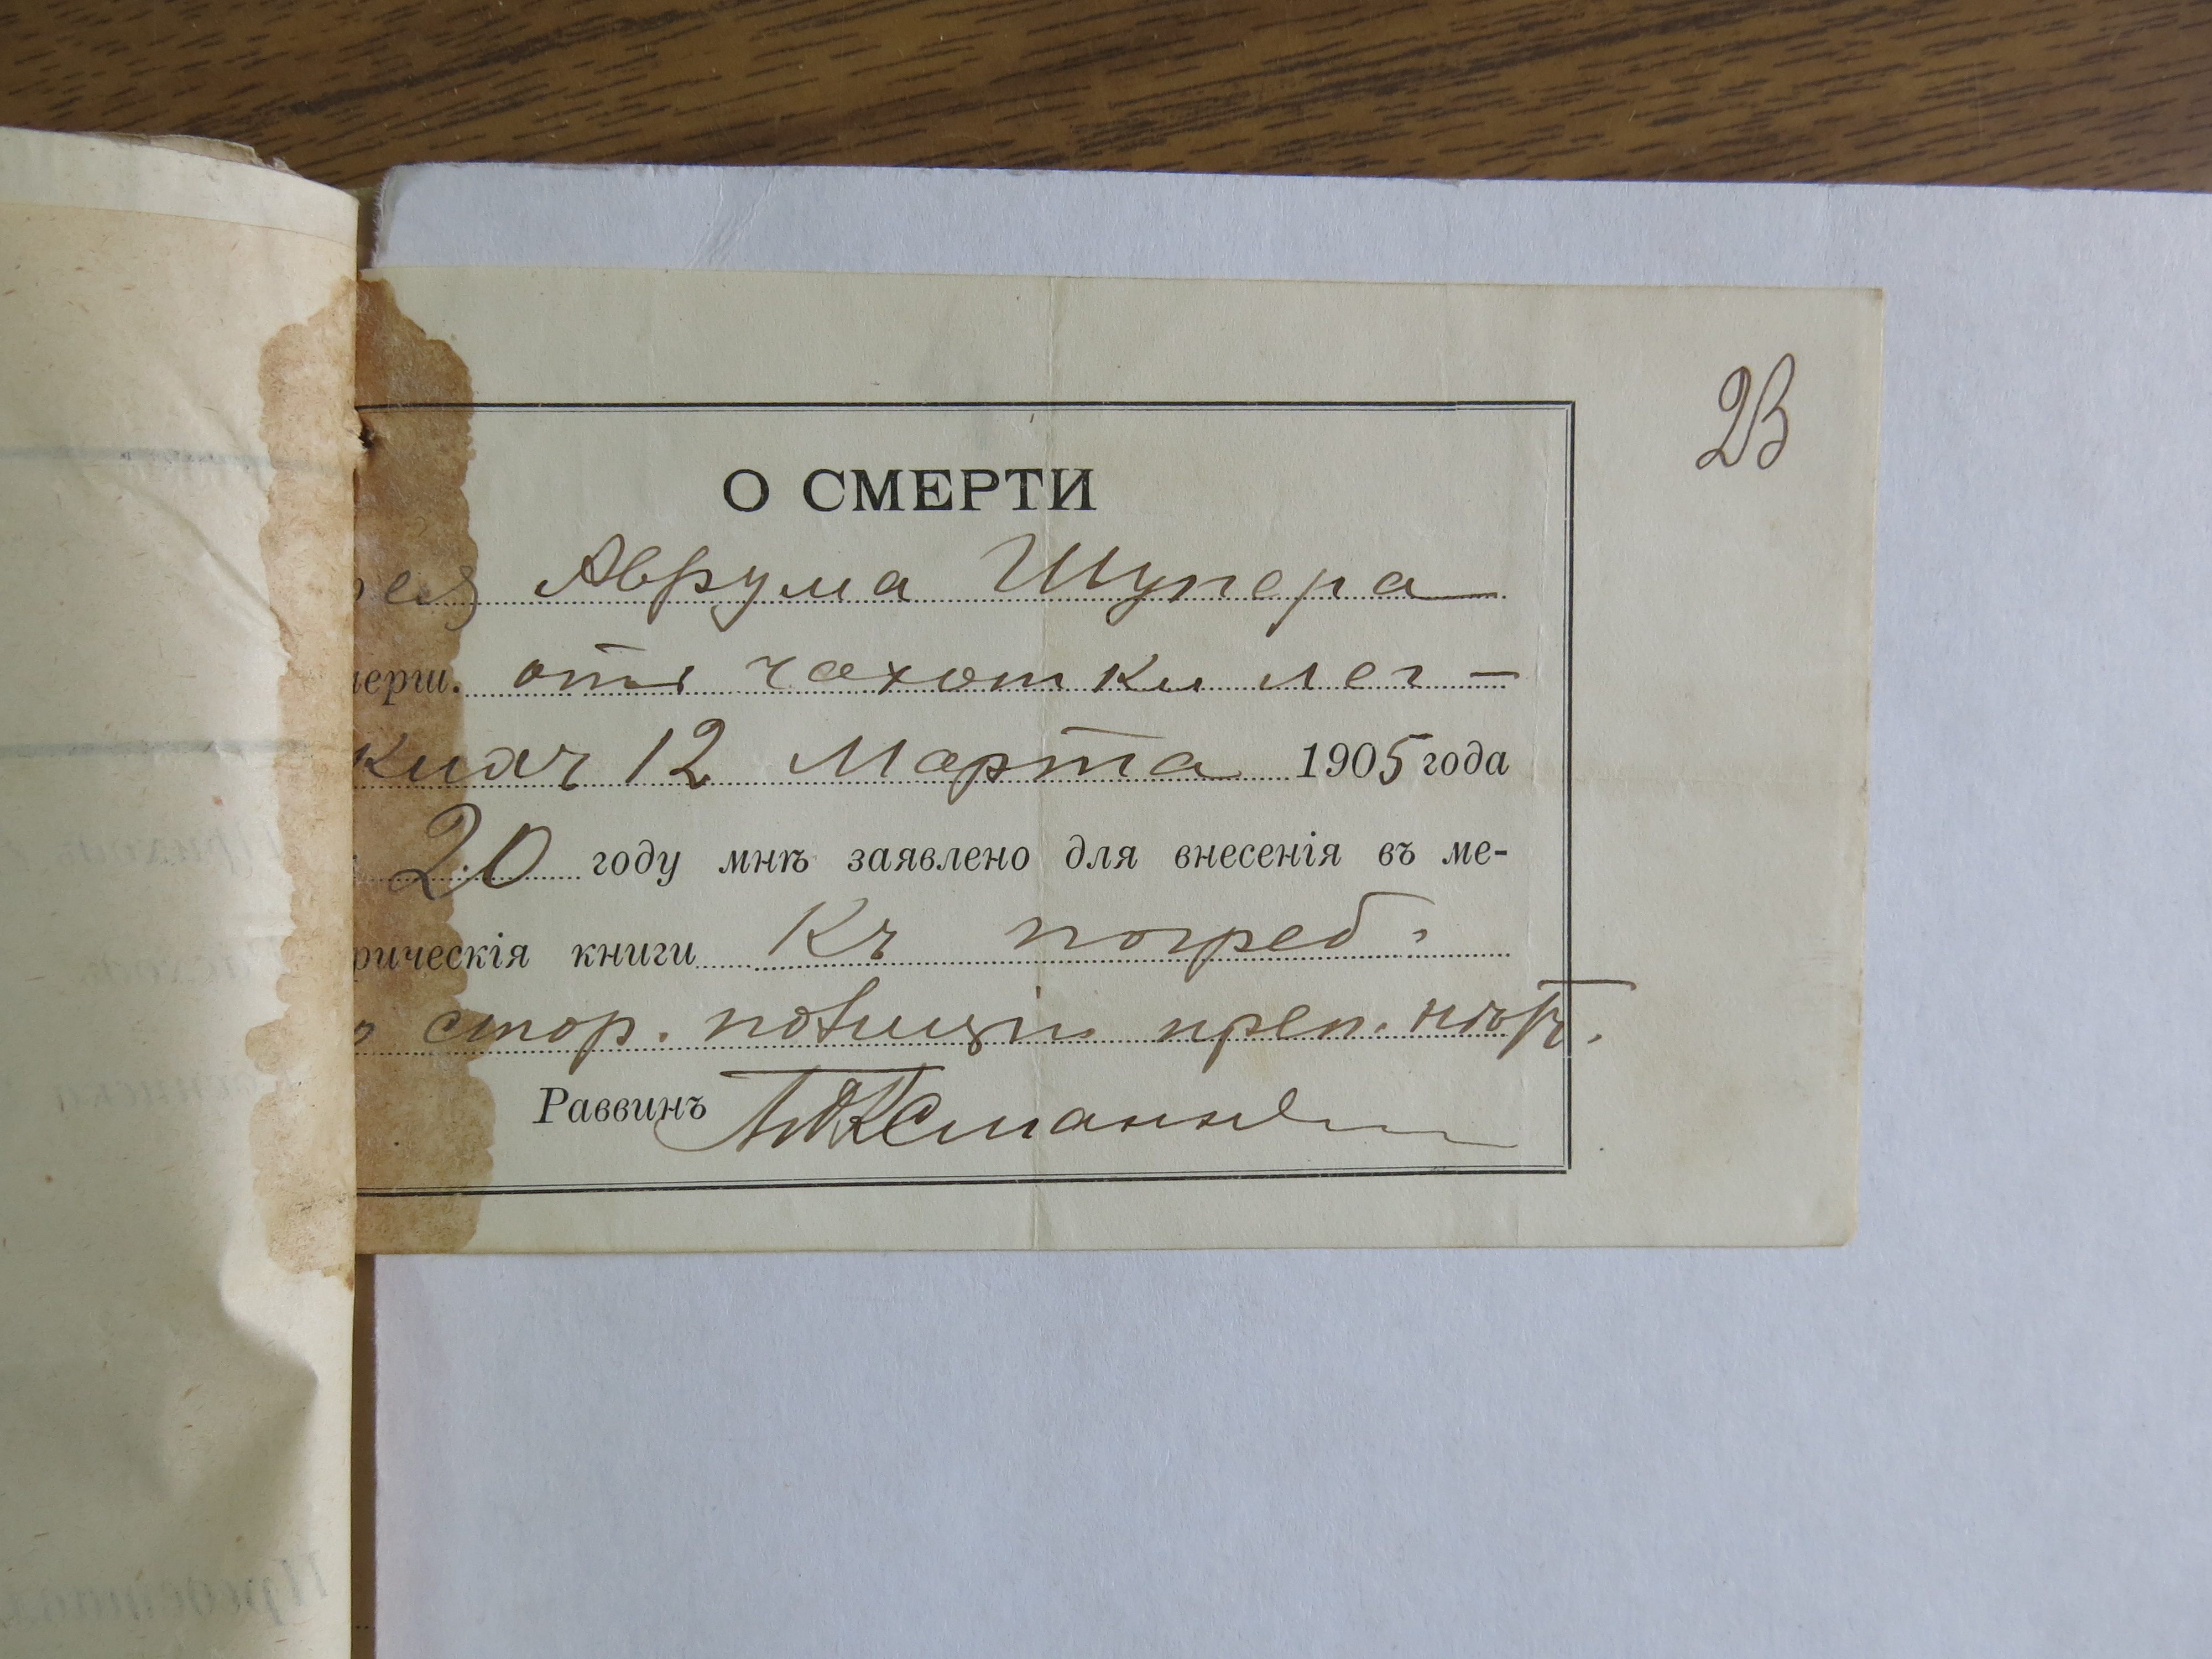 23
О СМЕРТИ
рея Аврума Шупера
мерш. отъ чахотки лег-
кихъ 12 Марта 1905 года
20 году мнѣ заявлено для внесенія въ ме-
рическія книги Къ погреб.
стор. полиціи преп. нѣтъ.
Раввинъ